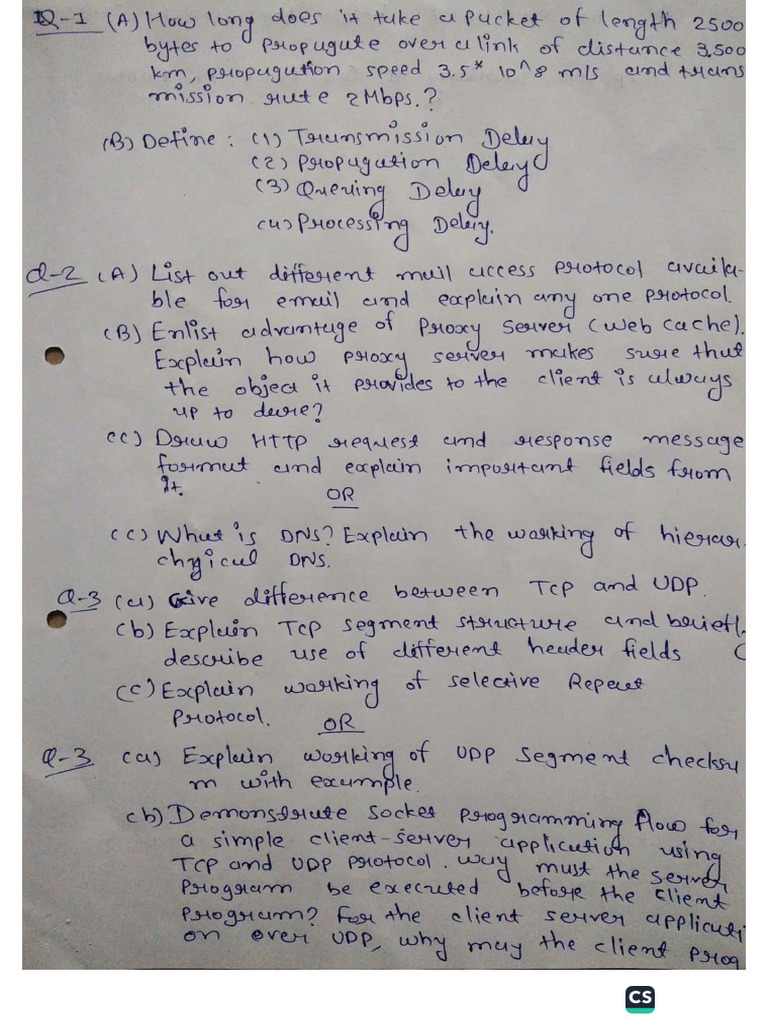 Q-1 (A) How long does it take a packet of length 2500
bytes to propagate over a link of distance 3,500
km, propagation speed 3.5* 10^8 m/s and trans
mission rate 2 Mbps.?
(B) Define : (1) Transmission Delay
(2) Propagation Delay
(3) Queuing Delay
(4) Processing Delay.
Q-2 (A) List out different mail access protocol availa-
ble for email and explain any one protocol.
(B) Enlist advantage of Proxy Server (web cache).
Explain how proxy server makes sure that
the object it provides to the client is always
up to date?
(C) Draw HTTP request and response message
format and explain important fields from
it.
OR
(C) What is DNS? Explain the working of hierar.
chgical DNS.
Q-3 (a) Give difference between TCP and UDP.
(b) Explain TCP segment structure and briefl
describe use of different header fields (
(C) Explain working of selective Repeat
Protocol. OR
Q-3 (a) Explain working of UDP Segment checksu
m with example.
(b) Demonstrate Socket programming flow for
a simple client-server application using
TCP and UDP protocol. way must the server
Program be executed before the client
program? For the client server applicati
on over UDP, why may the client prog
CS